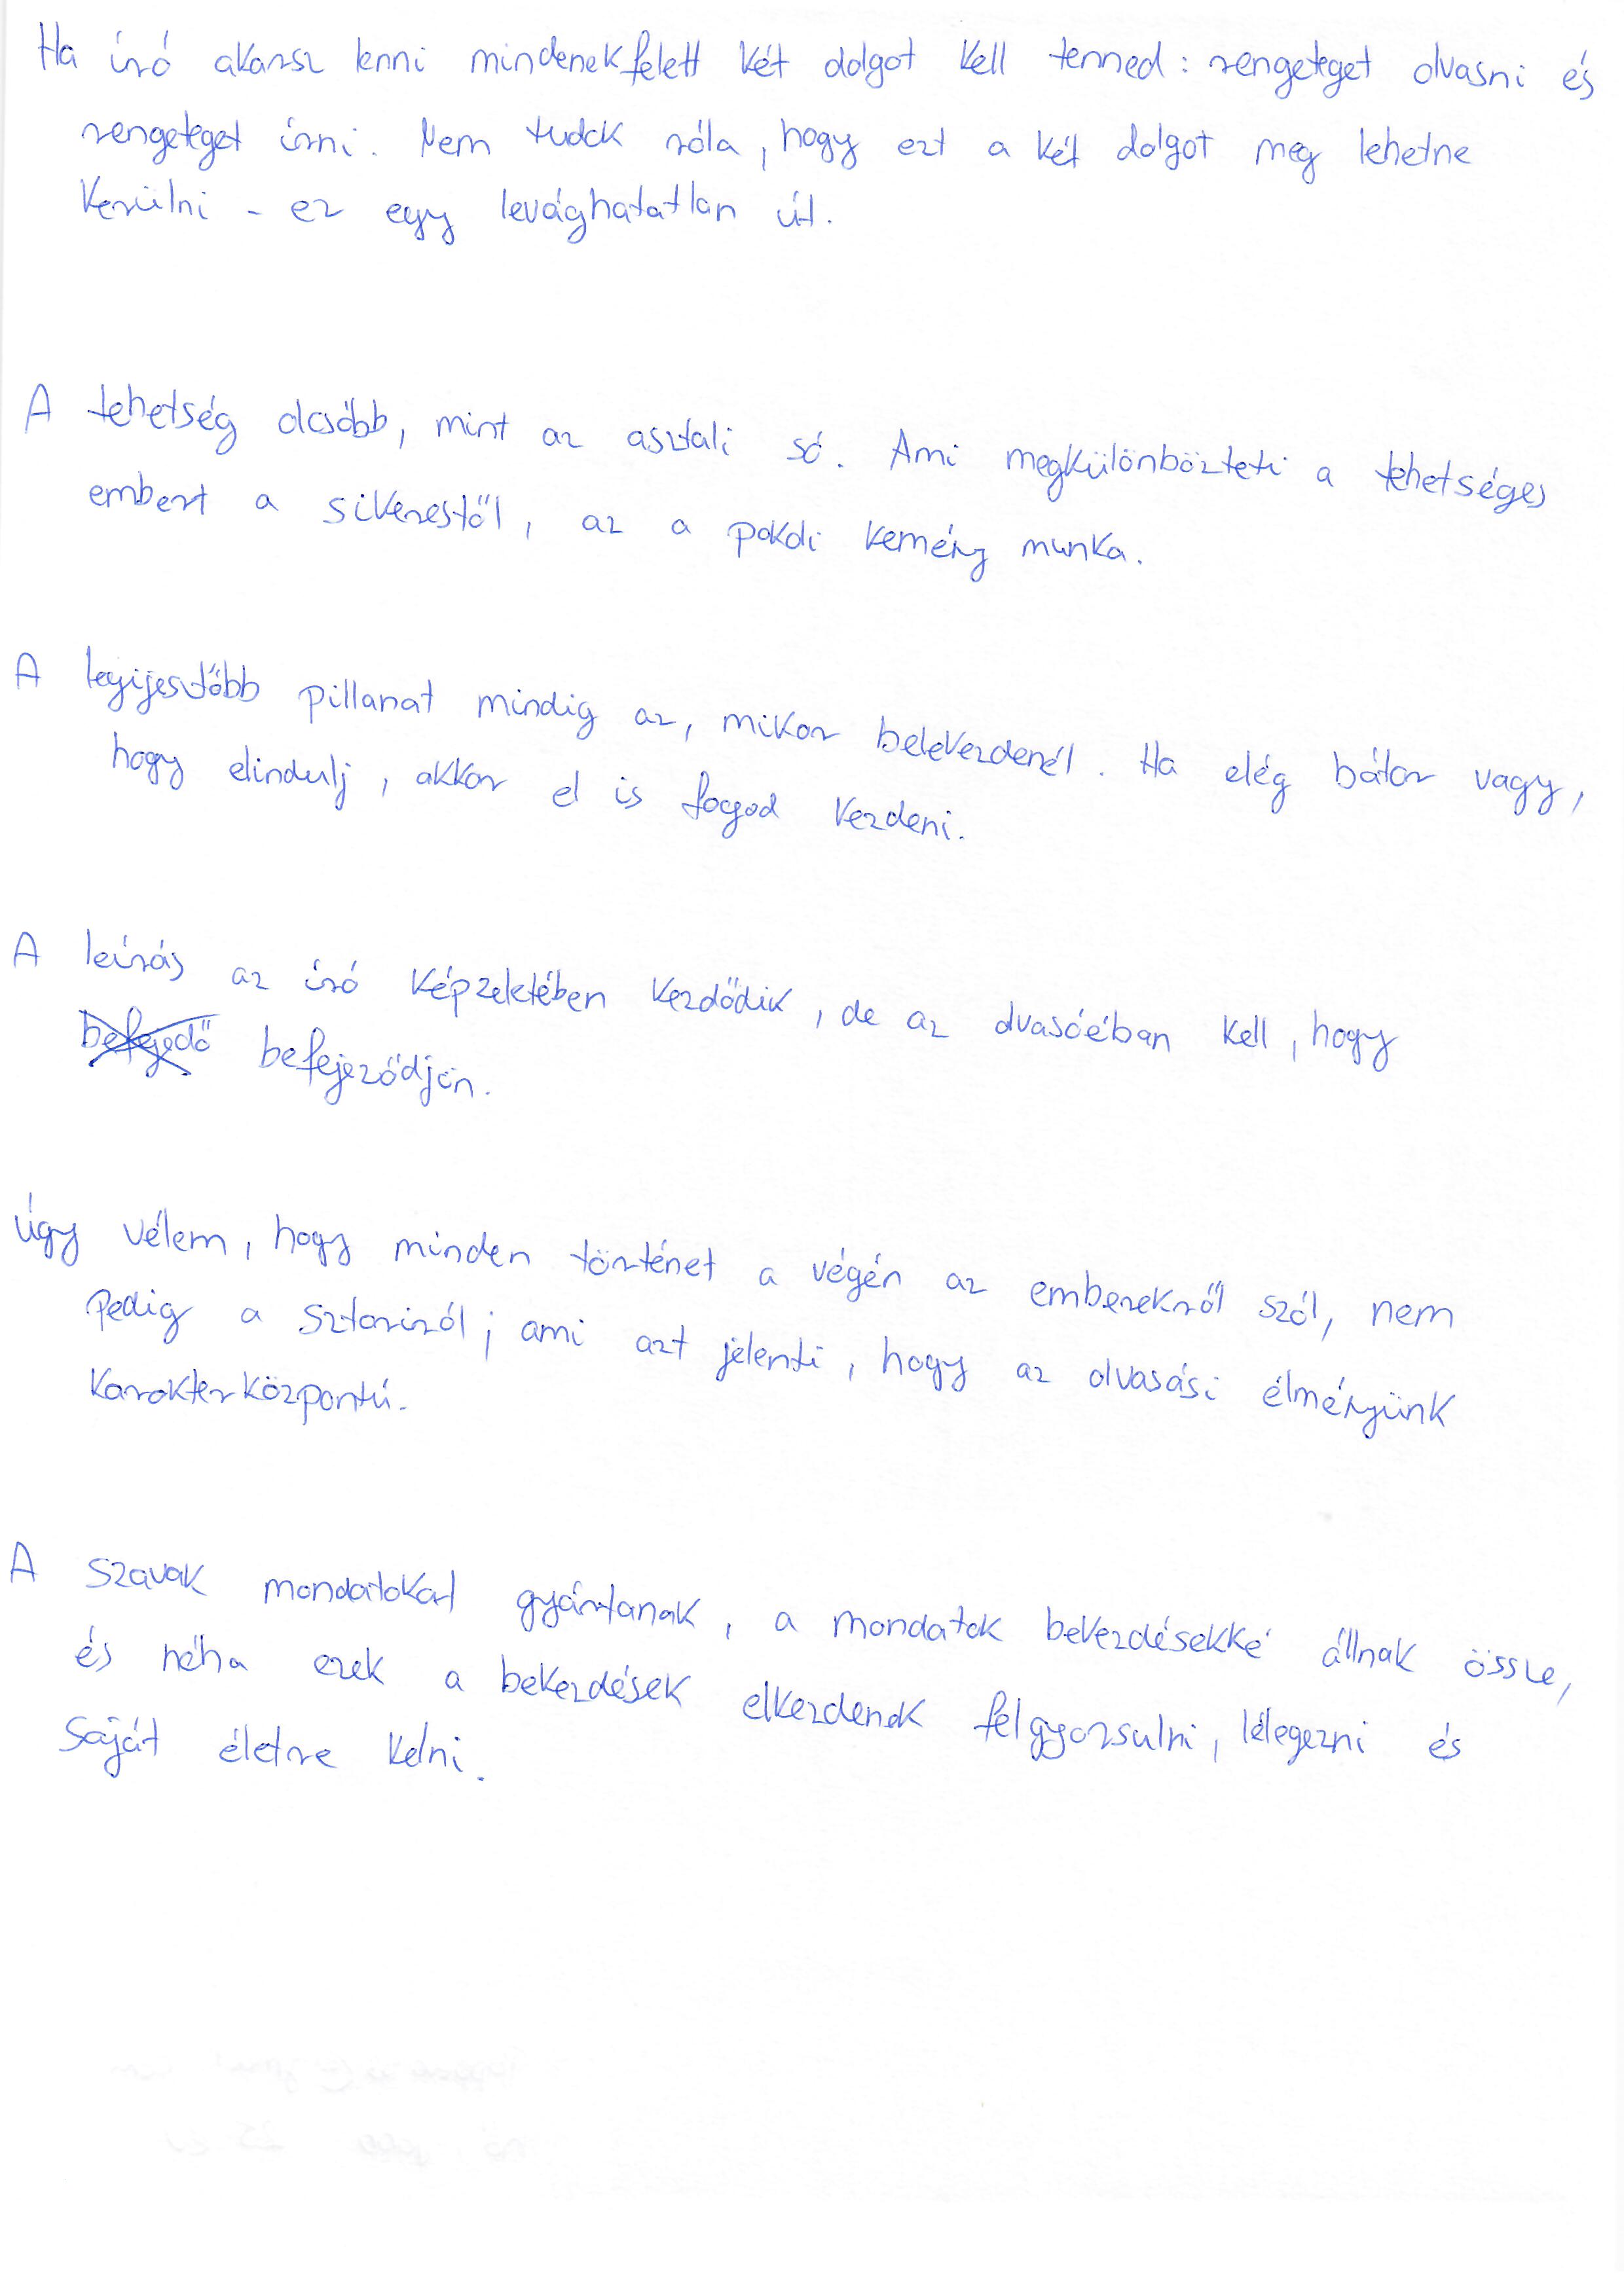 Ha író akarsz lenni mindenekfelett két dolgot kell tenned: rengeteget olvasni és
rengeteget írni. Nem tudok róla, hogy ezt a két dolgot meg lehetne
kerülni - ez egy levághatatlan út.
A tehetség olcsóbb, mint az asztali só. Ami megkülönbözteti a tehetséges
embert a sikerestől, az a pokoli kemény munka.
A legijesztőbb pillanat mindig az, mikor belekezdenél. Ha elég bátor vagy,
hogy elindulj, akkor el is fogod kezdeni.
A leírás az író képzeletében kezdődik, de az olvasóéban kell, hogy
befejedő befejeződjön.
Úgy vélem, hogy minden történet a végén az emberekről szól, nem
pedig a sztoriról; ami azt jelenti, hogy az olvasási élményünk
karakterközpontú.
A szavak mondatokat gyártanak, a mondatok bekezdésekké állnak össze,
és néha ezek a bekezdések elkezdenek felgyorsulni, lélegezni és
saját életre kelni.